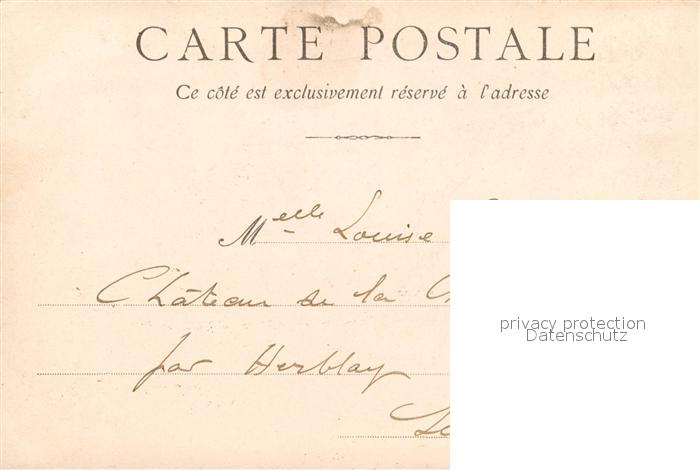 CARTE POSTALE
Ce côté est exclusivement réservé à l'adresse
Melle Louise
Château de la
par Herblay
privacy protection
Datenschutz